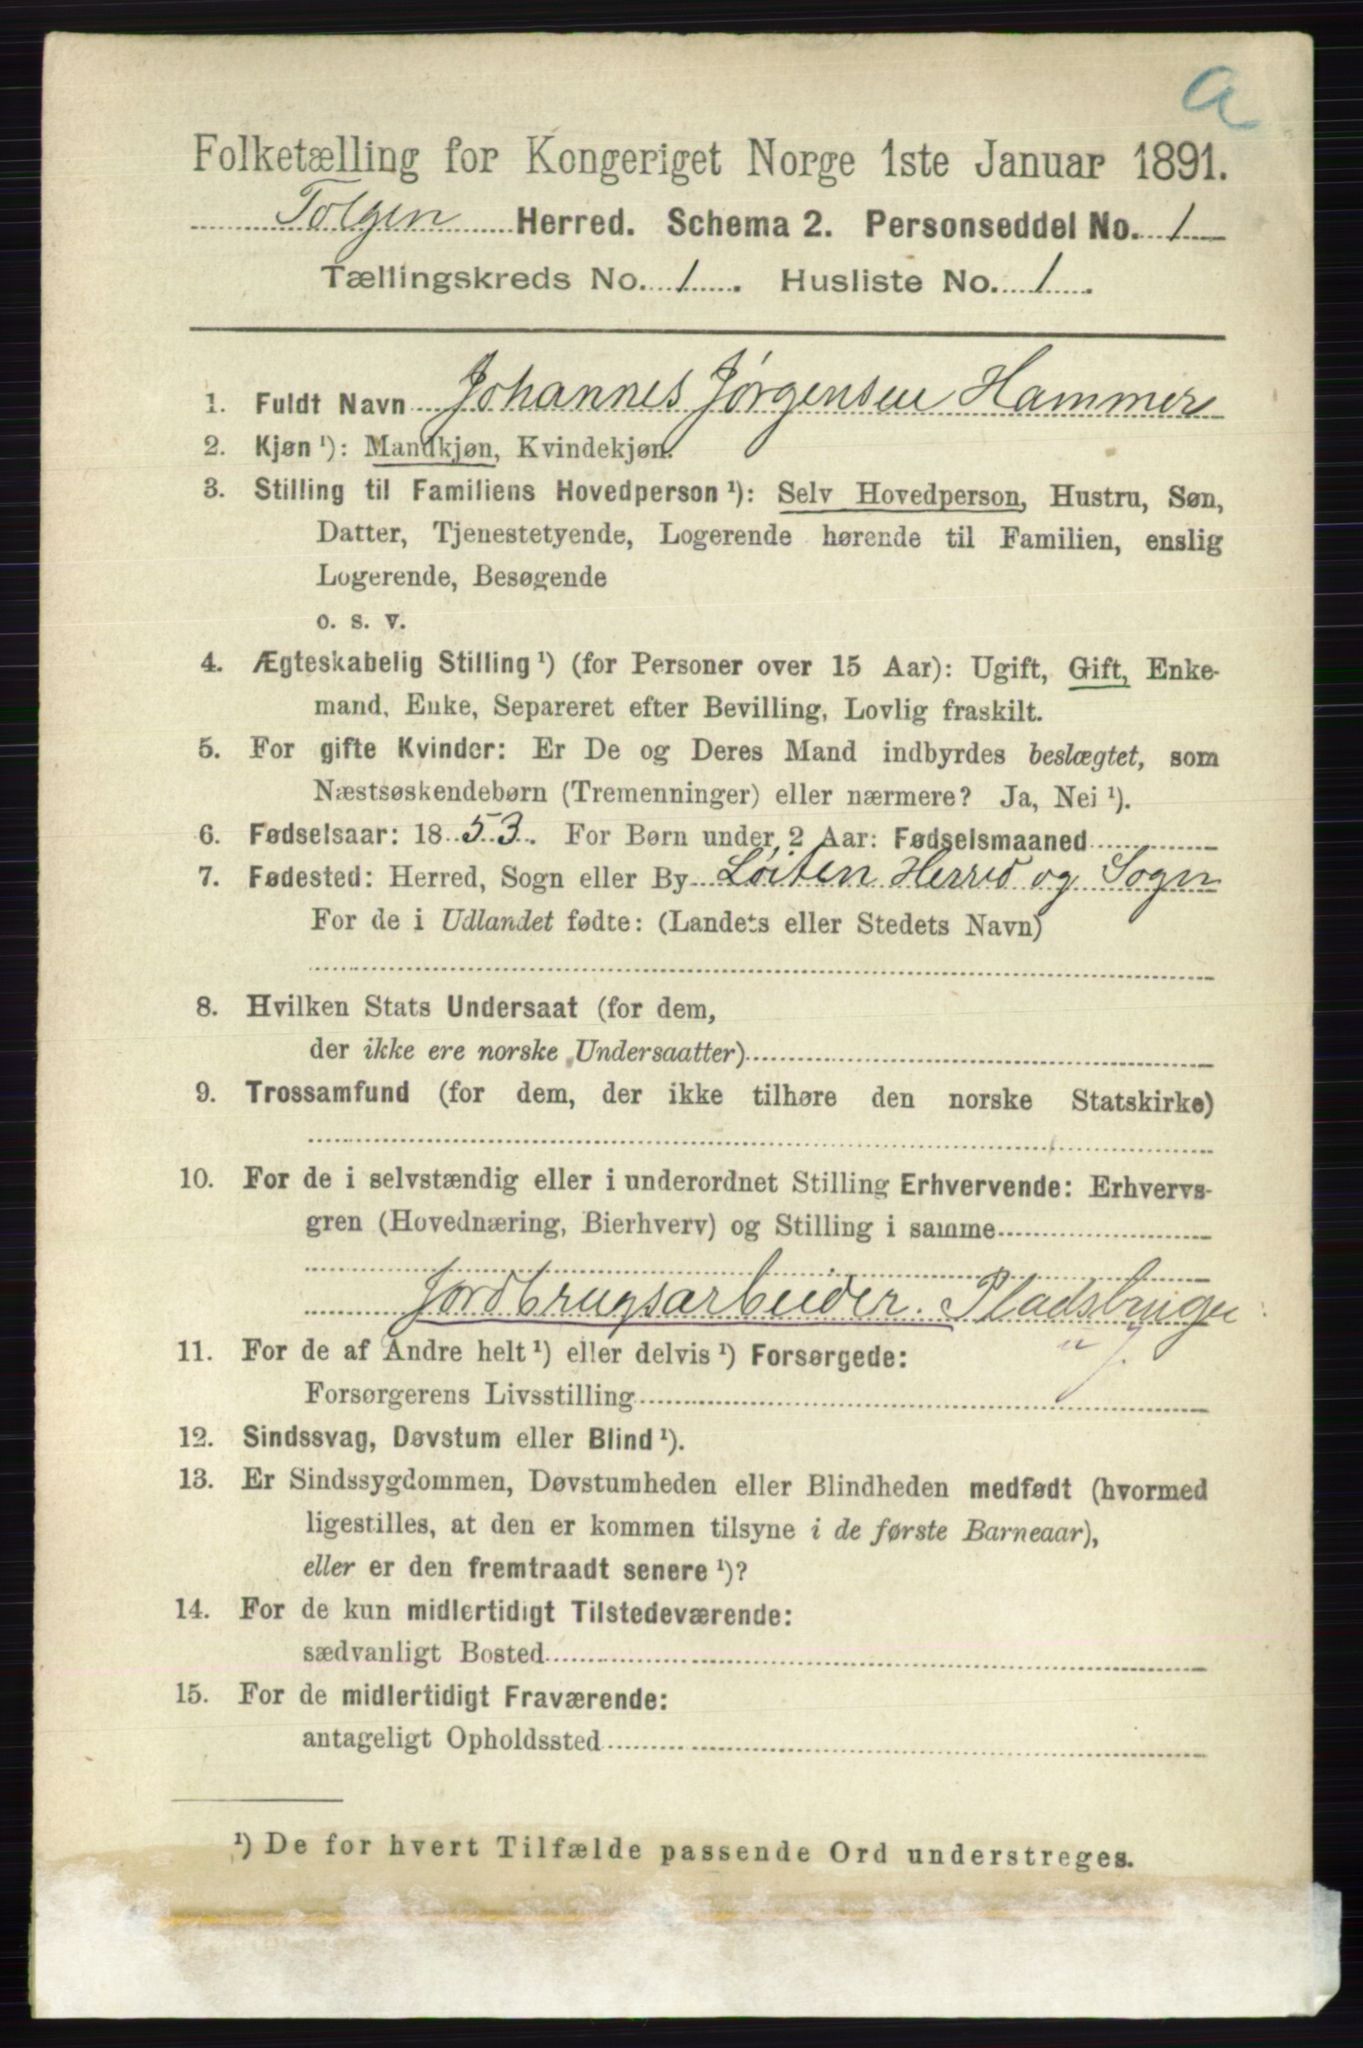 a
Folketælling for Kongeriget Norge 1ste Januar 1891.
Tolgen Herred. Schema 2. Personseddel No. 1
Tællingskreds No. 1. Husliste No. 1.
1. Fuldt Navn Johannes Jørgensen Hammer
2. Kjøn ¹): Mandkjøn, Kvindekjøn.
3. Stilling til Familiens Hovedperson ¹): Selv Hovedperson, Hustru, Søn,
Datter, Tjenestetyende, Logerende hørende til Familien, enslig
Logerende, Besøgende
o. s. v.
4. Ægteskabelig Stilling ¹) (for Personer over 15 Aar): Ugift, Gift, Enke-
mand, Enke, Separeret efter Bevilling, Lovlig fraskilt.
5. For gifte Kvinder: Er De og Deres Mand indbyrdes beslægtet, som
Næstsøskendebørn (Tremenninger) eller nærmere? Ja, Nei ¹).
6. Fødselsaar: 1853. For Børn under 2 Aar: Fødselsmaaned
7. Fødested: Herred, Sogn eller By Løiten Herred og Sogn
For de i Udlandet fødte: (Landets eller Stedets Navn)
8. Hvilken Stats Undersaat (for dem,
der ikke ere norske Undersaatter)
9. Trossamfund (for dem, der ikke tilhøre den norske Statskirke)
10. For de i selvstændig eller i underordnet Stilling Erhvervende: Erhvervs-
gren (Hovednæring, Bierhverv) og Stilling i samme
Jordbrugsarbeider. Pladsbruger
11. For de af Andre helt ¹) eller delvis ¹) Forsørgede:
Forsørgerens Livsstilling
12. Sindssvag, Døvstum eller Blind ¹).
13. Er Sindssygdommen, Døvstumheden eller Blindheden medfødt (hvormed
ligestilles, at den er kommen tilsyne i de første Barneaar),
eller er den fremtraadt senere ¹)?
14. For de kun midlertidigt Tilstedeværende:
sædvanligt Bosted
15. For de midlertidigt Fraværende:
antageligt Opholdssted
¹) De for hvert Tilfælde passende Ord understreges.